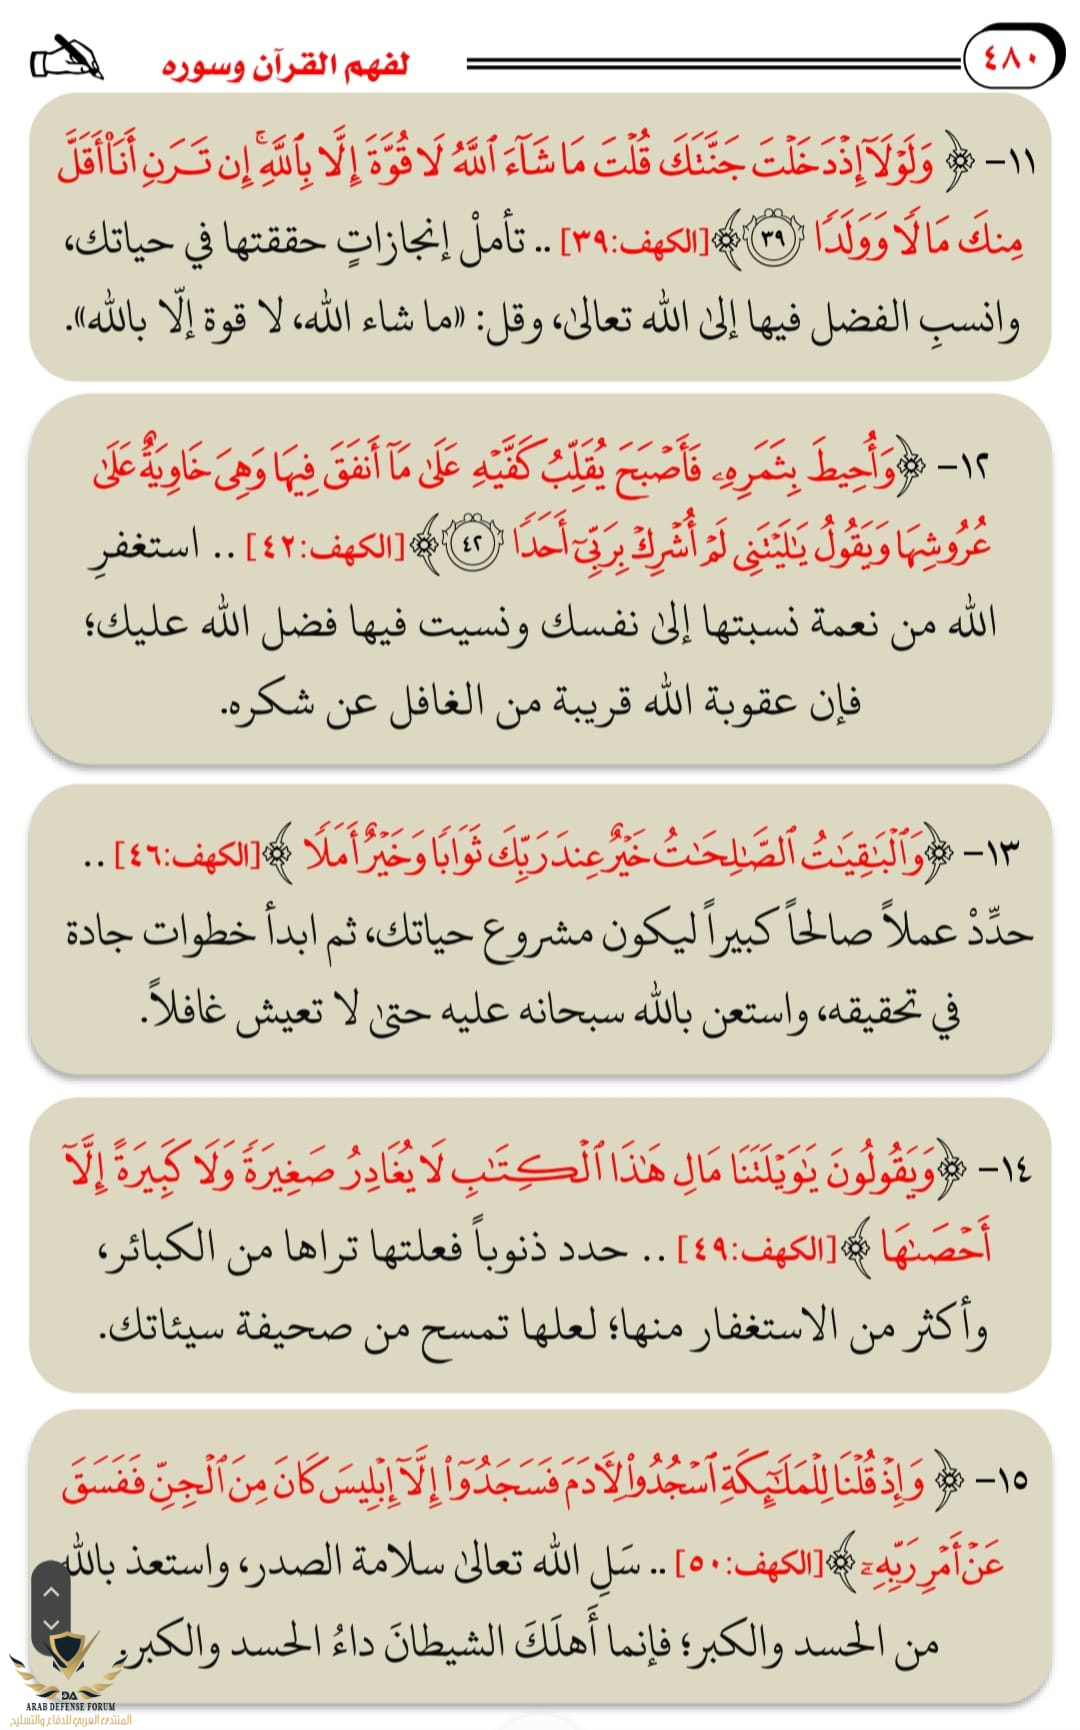 ٤٨٠
لفهم القرآن وسوره
١١- ﴿ وَلَوْلَآ إِذْ دَخَلْتَ جَنَّتَكَ قُلْتَ مَا شَآءَ ٱللَّهُ لَا قُوَّةَ إِلَّا بِٱللَّهِ ۚ إِن تَرَنِ أَنَا۠ أَقَلَّ
مِنكَ مَالًا وَوَلَدًا ٣٩ ﴾ [الكهف:٣٩] .. تأملْ إنجازاتٍ حققتها في حياتك،
وانسبِ الفضل فيها إلىٰ الله تعالىٰ، وقل: «ما شاء الله، لا قوة إلّا بالله».
١٢- ﴿وَأُحِيطَ بِثَمَرِهِۦ فَأَصْبَحَ يُقَلِّبُ كَفَّيْهِ عَلَىٰ مَآ أَنفَقَ فِيهَا وَهِىَ خَاوِيَةٌ عَلَىٰ
عُرُوشِهَا وَيَقُولُ يَٰلَيْتَنِى لَمْ أُشْرِكْ بِرَبِّىٓ أَحَدًا ٤٢ ﴾ [الكهف:٤٢] .. استغفرِ
الله من نعمة نسبتها إلىٰ نفسك ونسيت فيها فضل الله عليك؛
فإن عقوبة الله قريبة من الغافل عن شكره.
١٣- ﴿وَٱلْبَٰقِيَٰتُ ٱلصَّٰلِحَٰتُ خَيْرٌ عِندَ رَبِّكَ ثَوَابًا وَخَيْرٌ أَمَلًا ﴾ [الكهف:٤٦] ..
حدِّدْ عملاً صالحاً كبيراً ليكون مشروع حياتك، ثم ابدأ خطوات جادة
في تحقيقه، واستعن بالله سبحانه عليه حتىٰ لا تعيش غافلاً.
١٤- ﴿وَيَقُولُونَ يَٰوَيْلَتَنَا مَالِ هَٰذَا ٱلْكِتَٰبِ لَا يُغَادِرُ صَغِيرَةً وَلَا كَبِيرَةً إِلَّآ
أَحْصَىٰهَا ﴾ [الكهف:٤٩] .. حدد ذنوباً فعلتها تراها من الكبائر،
وأكثر من الاستغفار منها؛ لعلها تمسح من صحيفة سيئاتك.
١٥- ﴿ وَإِذْ قُلْنَا لِلْمَلَٰٓئِكَةِ ٱسْجُدُوا۟ لِـَٔادَمَ فَسَجَدُوٓا۟ إِلَّآ إِبْلِيسَ كَانَ مِنَ ٱلْجِنِّ فَفَسَقَ
عَنْ أَمْرِ رَبِّهِۦٓ ﴾ [الكهف:٥٠] .. سَلِ الله تعالىٰ سلامة الصدر، واستعذ بالله
من الحسد والكبر؛ فإنما أَهلَكَ الشيطانَ داءُ الحسد والكبر.
DA
ARAB DEFENSE FORUM
المنتدى العربي للدفاع والتسليح